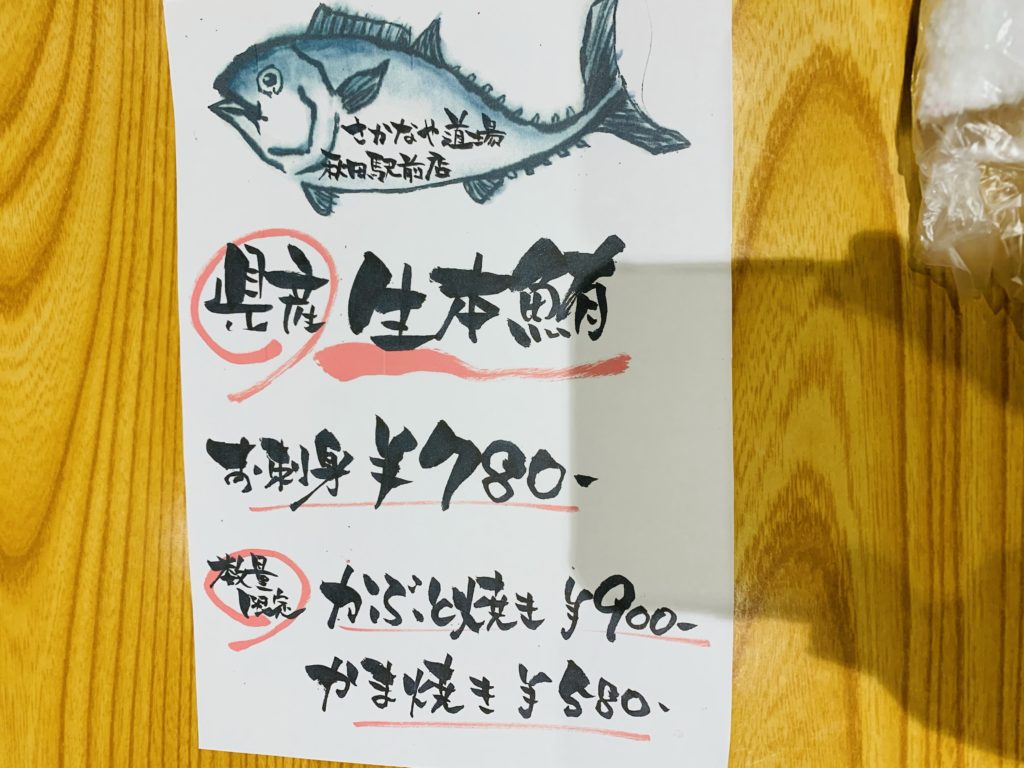 さかなや道場
秋田駅前店
県産 生本鮪
お刺身 ¥780-
数量
限定
かぶと焼き ¥900-
かま焼き ¥580-